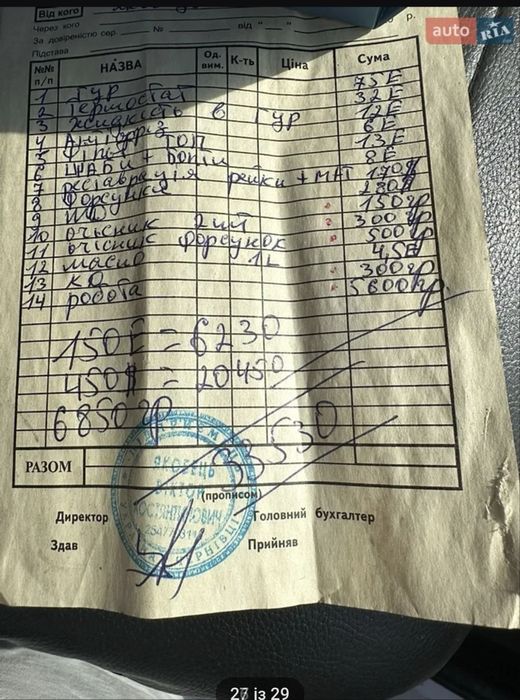 Від кого
Через кого
За довіреністю сер. № від " " р.
Підстава
auto RIA
№№ п/п НАЗВА Од. вим. К-ть Ціна Сума
1 ГУР 75£
2 Термостат 32£
3 жидкість в ГУР 12£
4 Антифриз 6£
5 Фільтр топ 13£
6 шайби + болти 8£
7 реставрація рейки + МАТ 170$
8 Форсунки 280$
9 150гр
10 очісник 2 шт 300гр
11 очісник форсунок 500гр
12 масло 1L 4,5£
13 300гр
14 робота 5600гр.
150£ = 6230
450$ = 20450
6850гр
33530
РАЗОМ
(прописом)
Директор Головний бухгалтер
Здав Прийняв
27 із 29